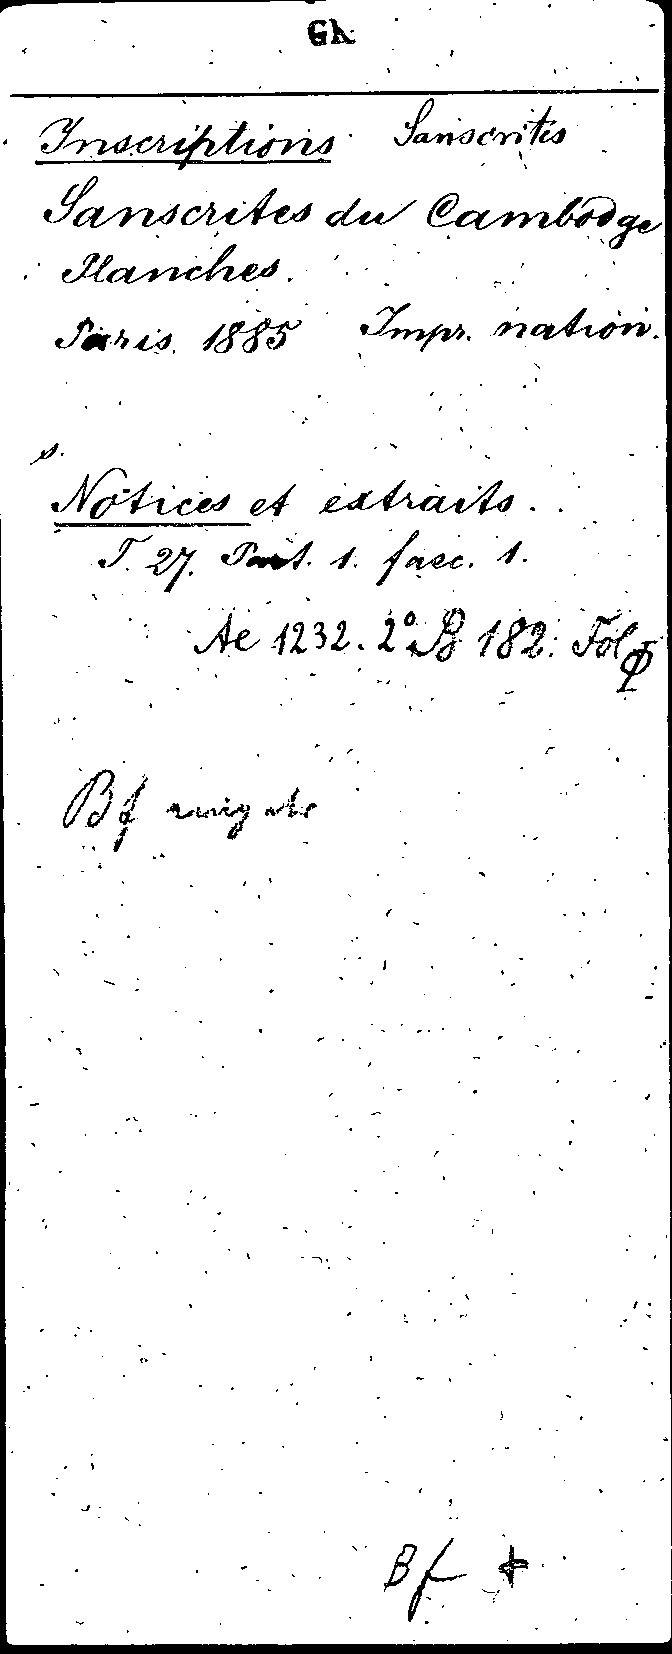 GK
Inscriptions Sanscrites
Sanscrites du Cambodge
Planches.
Paris. 1885 Impr. nation.
s.
Notices et extraits.
T. 27. Part. 1. fasc. 1.
Ae 1232. 2° B 182. Fol
Bf
Bf +